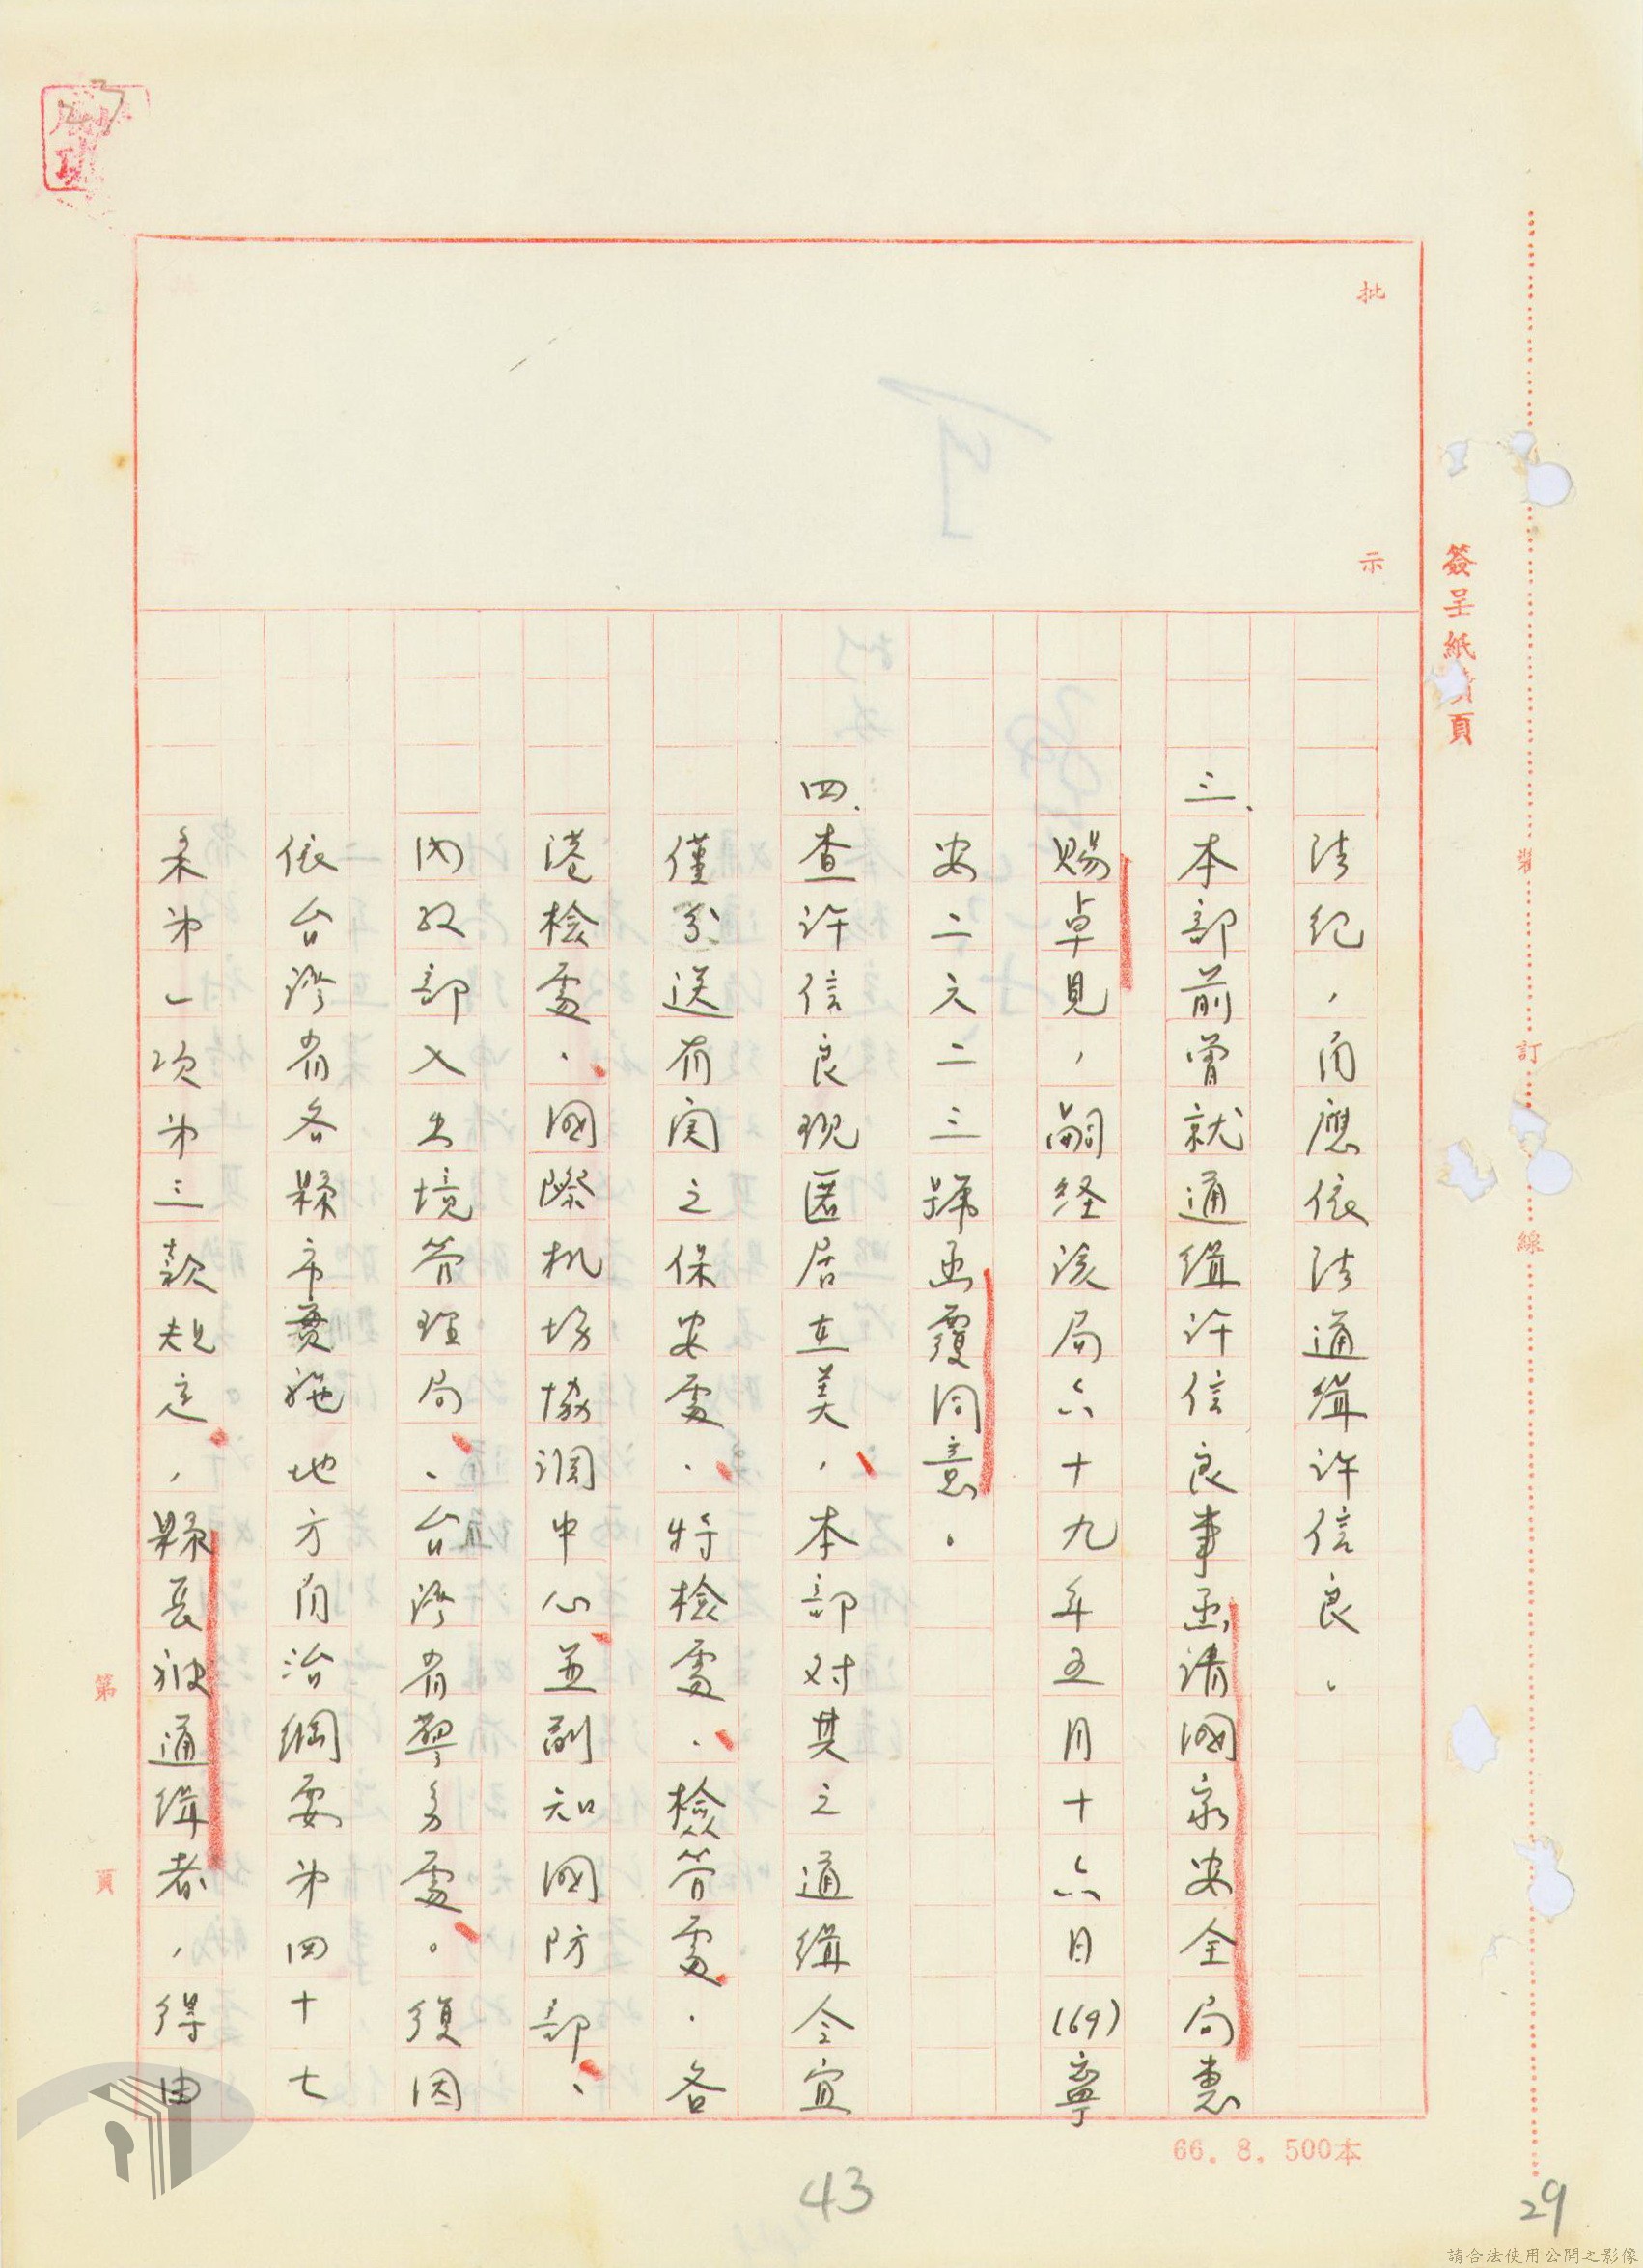 批
示
簽呈紙　頁
裝
訂
線
法紀，自應依法通緝許信良。
三、本部前曾就通緝許信良事函請國家安全局惠
賜卓見，嗣経該局六十九年五月十六日(69)寧
安二六二三號函覆同意。
四、查許信良現匿居在美，本部对其之通緝令宜
僅分送有関之保安處、特檢處、檢管處、各
港檢處、國際机場協调中心並副知國防部、
內政部入出境管理局、台湾省警务處。復因
依台湾省各縣市實施地方自治綱要第四十七
条第一項第三款規定，縣長被通緝者，得由
第
頁
66. 8. 500本
43
29
請合法使用公開之影像